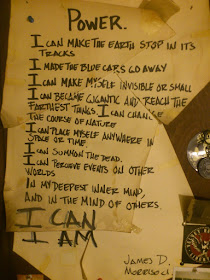 POWER.
I CAN MAKE THE EARTH STOP IN ITS
TRACKS
I MADE THE BLUE CARS GO AWAY
I CAN MAKE MYSELF INVISIBLE OR SMALL
I CAN BECOME GIGANTIC AND REACH THE
FARTHEST THINGS. I CAN CHANGE
THE COURSE OF NATURE
I CAN PLACE MYSELF ANYWHERE IN
SPACE OR TIME.
I CAN SUMMON THE DEAD.
I CAN PERCEIVE EVENTS ON OTHER
WORLDS
IN MY DEEPEST INNER MIND,
AND IN THE MIND OF OTHERS.
I CAN
I AM
JAMES D.
MORRISON